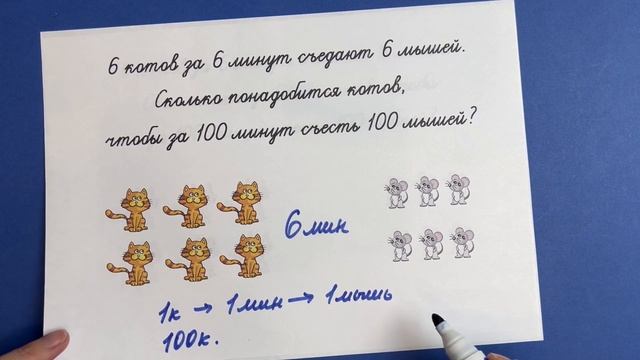 6 котов за 6 минут съедают 6 мышей.
Сколько понадобится котов,
чтобы за 100 минут съесть 100 мышей?
6 мин
1к → 1 мин → 1 мышь
100к.